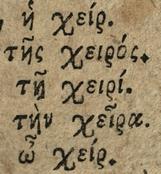 ἡ χείρ.
τῆς χειρός.
τῇ χειρί.
τὴν χεῖρα.
ὦ χείρ.